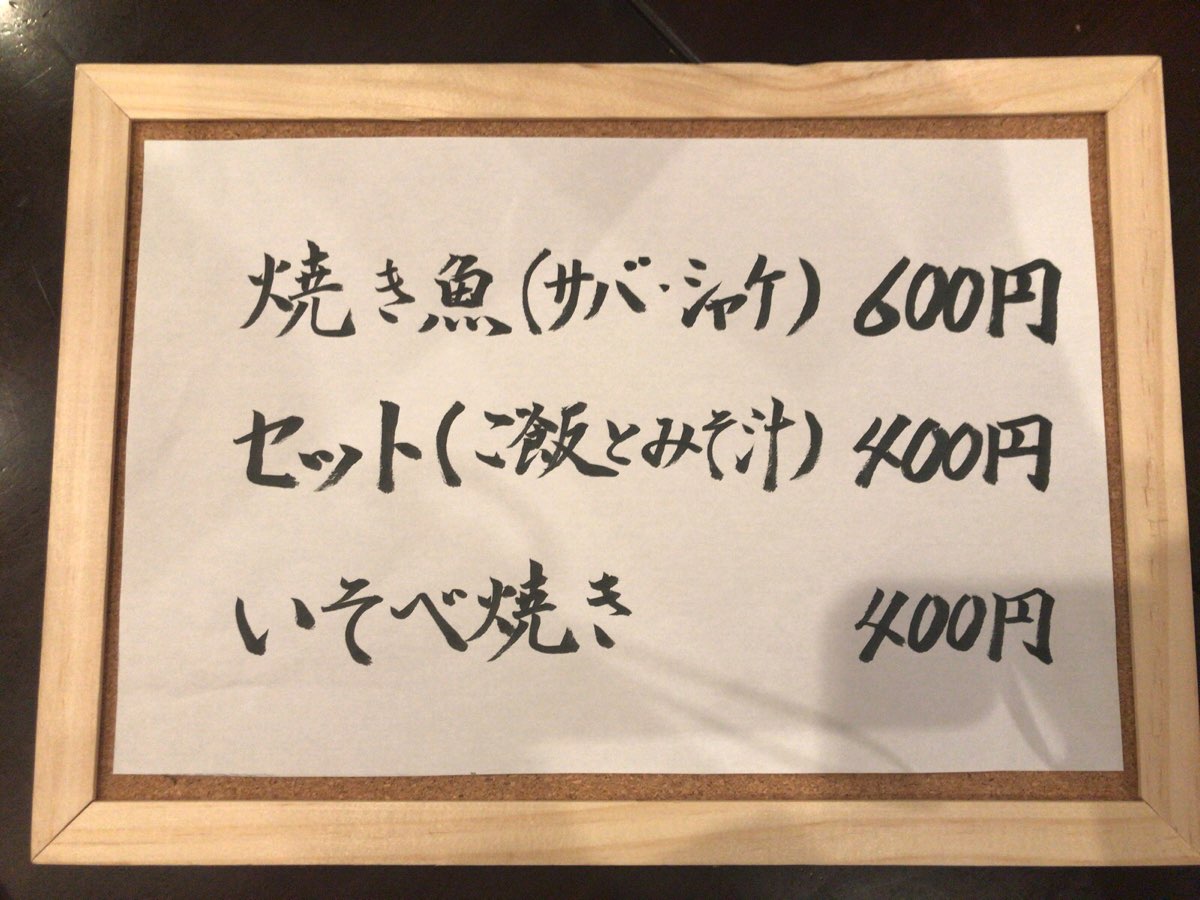 焼き魚(サバ・シャケ) 600円
セット(ご飯とみそ汁) 400円
いそべ焼き 400円